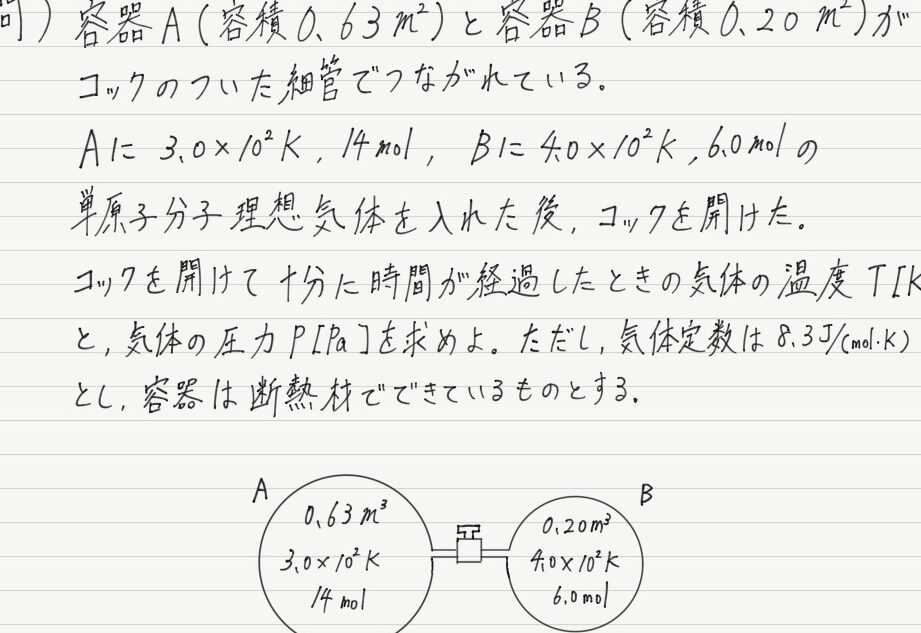 問) 容器A(容積0.63m²)と容器B(容積0.20 m²)が
コックのついた細管でつながれている。
Aに 3.0×10²K , 14mol , Bに 4.0×10²K , 6.0molの
単原子分子理想気体を入れた後, コックを開けた。
コックを開けて十分に時間が経過したときの気体の温度 T[K
と, 気体の圧力 P[Pa]を求めよ。ただし, 気体定数は 8.3J/(mol·K)
とし, 容器は断熱材でできているものとする。
A
B
0.63 m³
0.20m³
3.0×10²K
4.0×10²K
14 mol
6.0mol